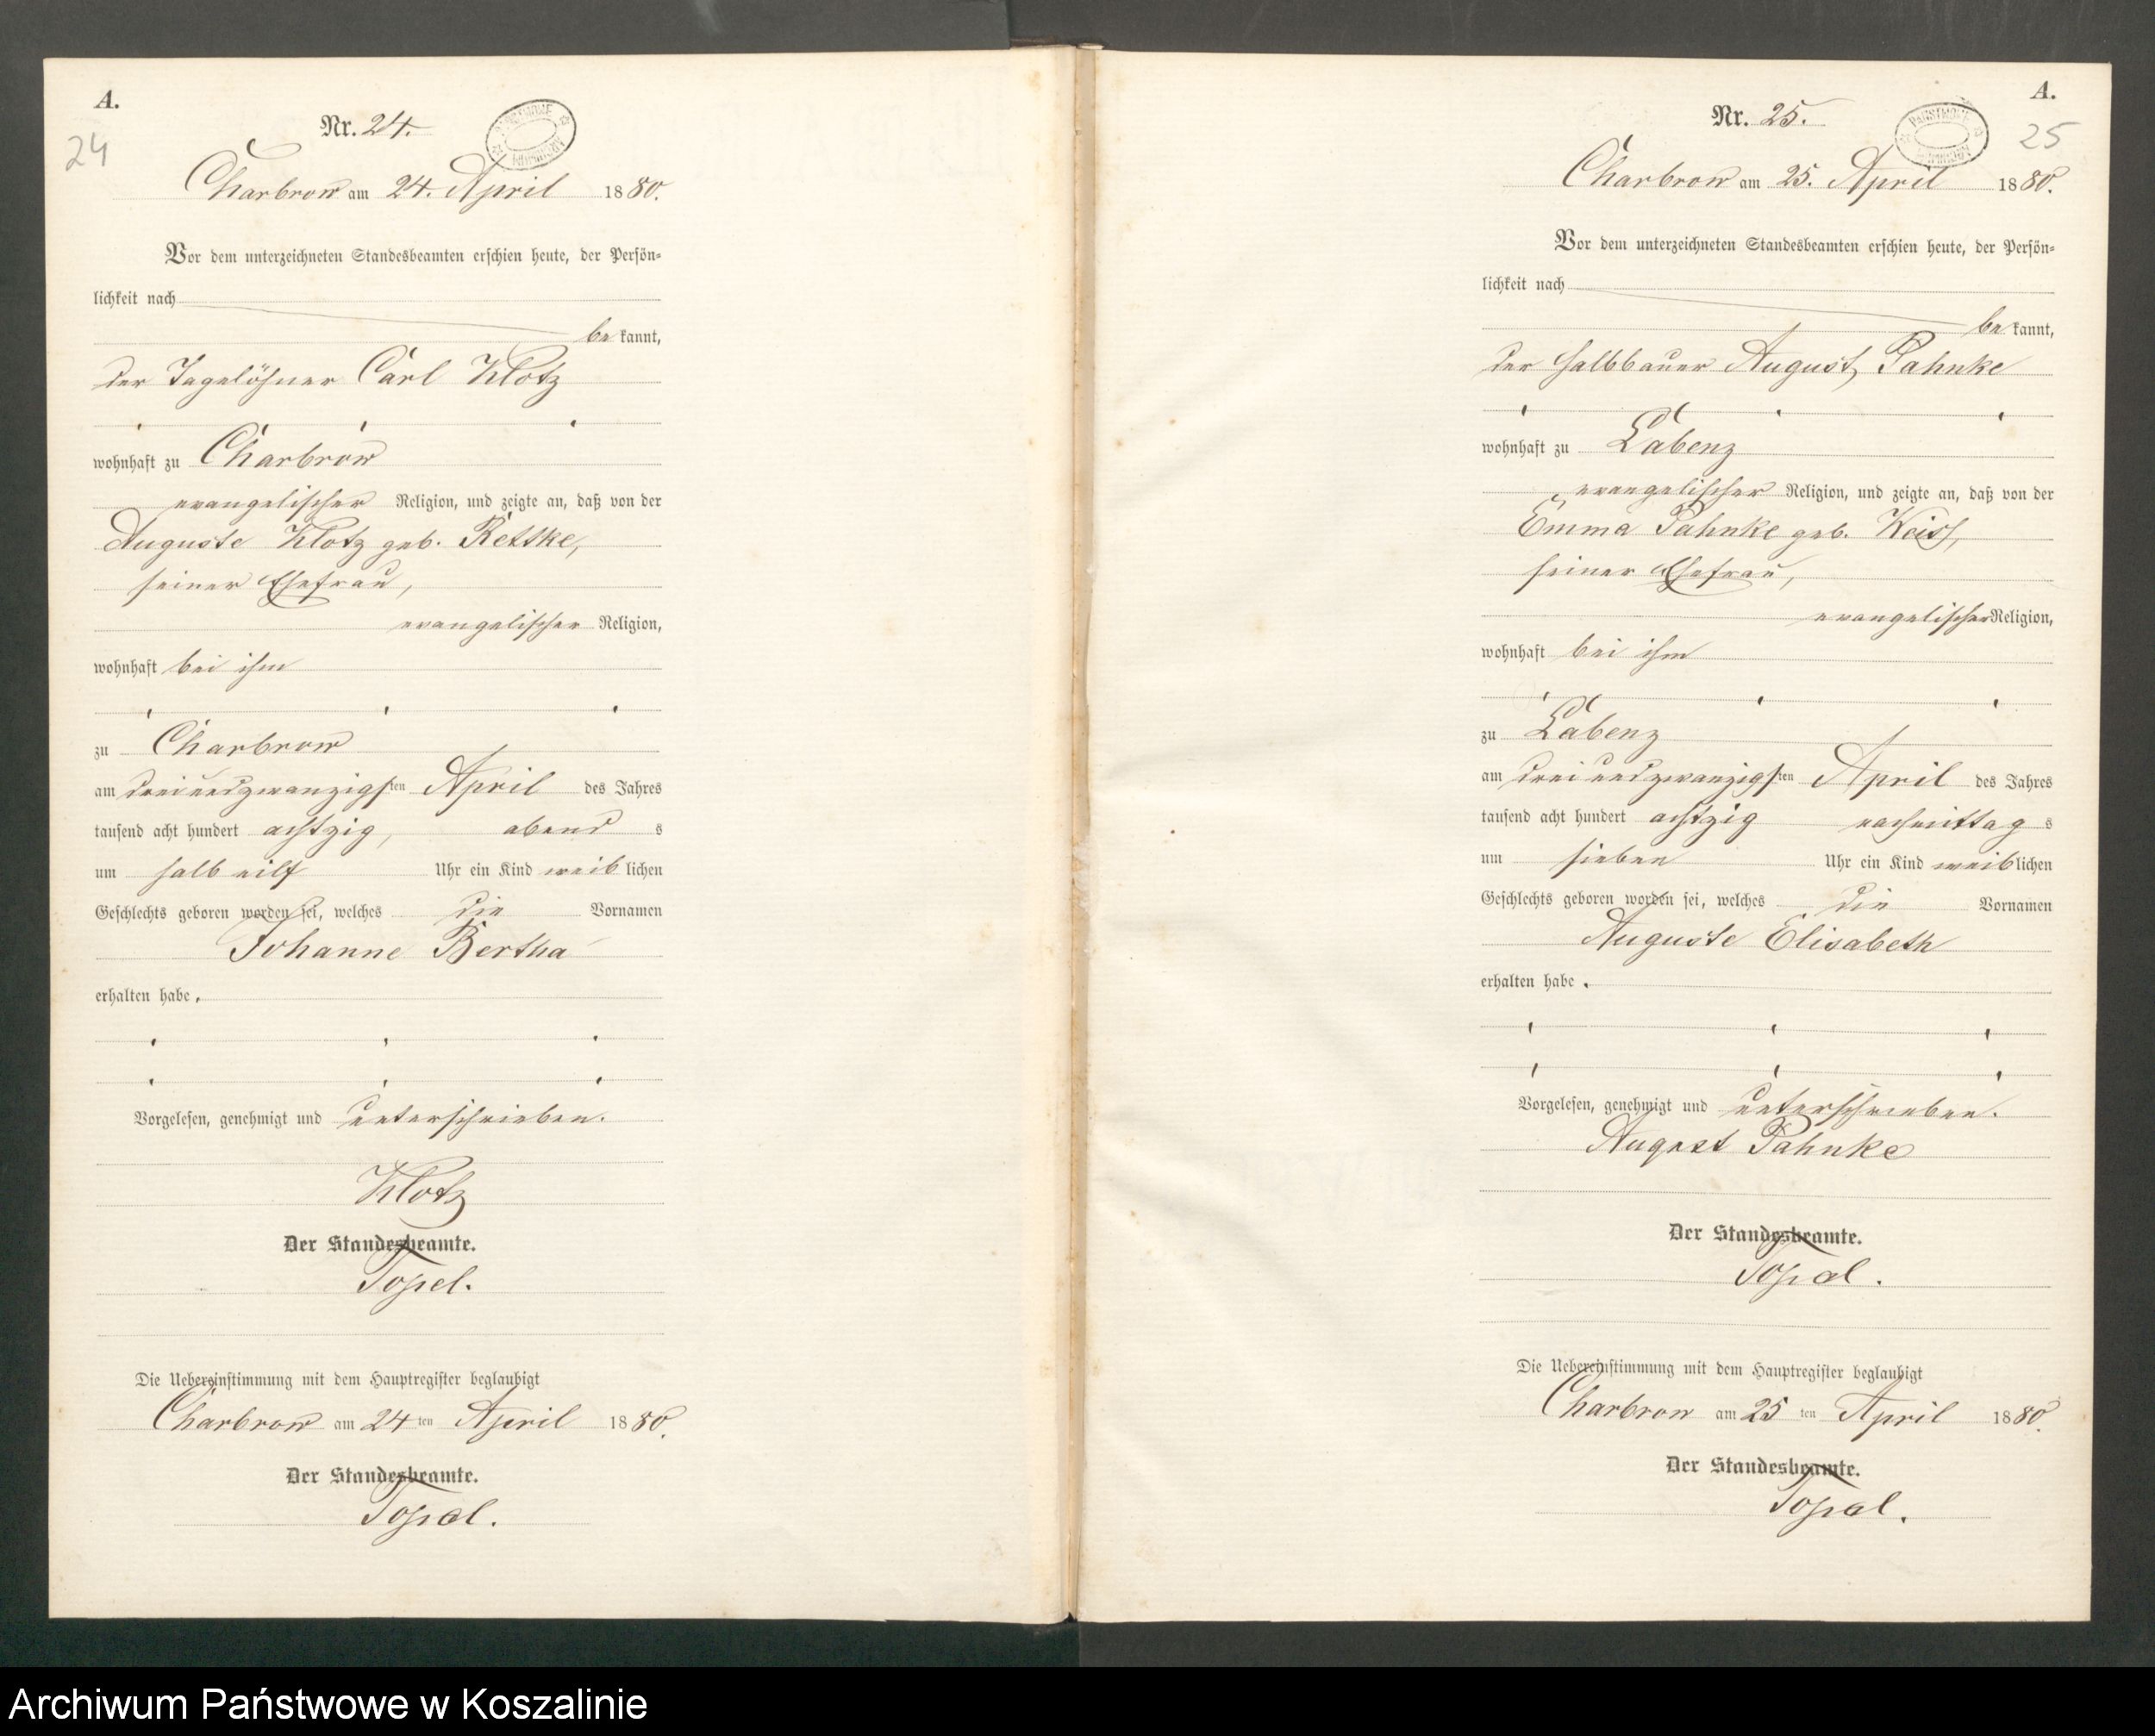 A.
24
Nr. 24.
Charbrow am 24. April 1880.
Vor dem unterzeichneten Standesbeamten erschien heute, der Persön-
lichkeit nach
be kannt,
der Tagelöhner Carl Klotz
wohnhaft zu Charbrow
evangelischer Religion, und zeigte an, daß von der
Auguste Klotz geb. Retzke,
seiner Ehefrau,
evangelischer Religion,
wohnhaft bei ihm
zu Charbrow
am dreiundzwanzigsten April des Jahres
tausend acht hundert achtzig, abend s
um halb eilf Uhr ein Kind weib lichen
Geschlechts geboren worden sei, welches die Vornamen
Johanne Bertha
erhalten habe.
Vorgelesen, genehmigt und unterschrieben.
Klotz
Der Standesbeamte.
Topel.
Die Uebereinstimmung mit dem Hauptregister beglaubigt
Charbrow am 24ten April 1880.
Der Standesbeamte.
Topel.
A.
25
Nr. 25.
Charbrow am 25. April 1880.
Vor dem unterzeichneten Standesbeamten erschien heute, der Persön-
lichkeit nach
be kannt,
der Halbbauer August Pahnke
wohnhaft zu Labenz
evangelischer Religion, und zeigte an, daß von der
Emma Pahnke geb. Weiss,
seiner Ehefrau,
evangelischer Religion,
wohnhaft bei ihm
zu Labenz
am dreiundzwanzigsten April des Jahres
tausend acht hundert achtzig nachmittag s
um sieben Uhr ein Kind weiblichen
Geschlechts geboren worden sei, welches die Vornamen
Auguste Elisabeth
erhalten habe.
Vorgelesen, genehmigt und unterschrieben.
August Pahnke
Der Standesbeamte.
Topel.
Die Uebereinstimmung mit dem Hauptregister beglaubigt
Charbrow am 25ten April 1880.
Der Standesbeamte.
Topel.
Archiwum Państwowe w Koszalinie